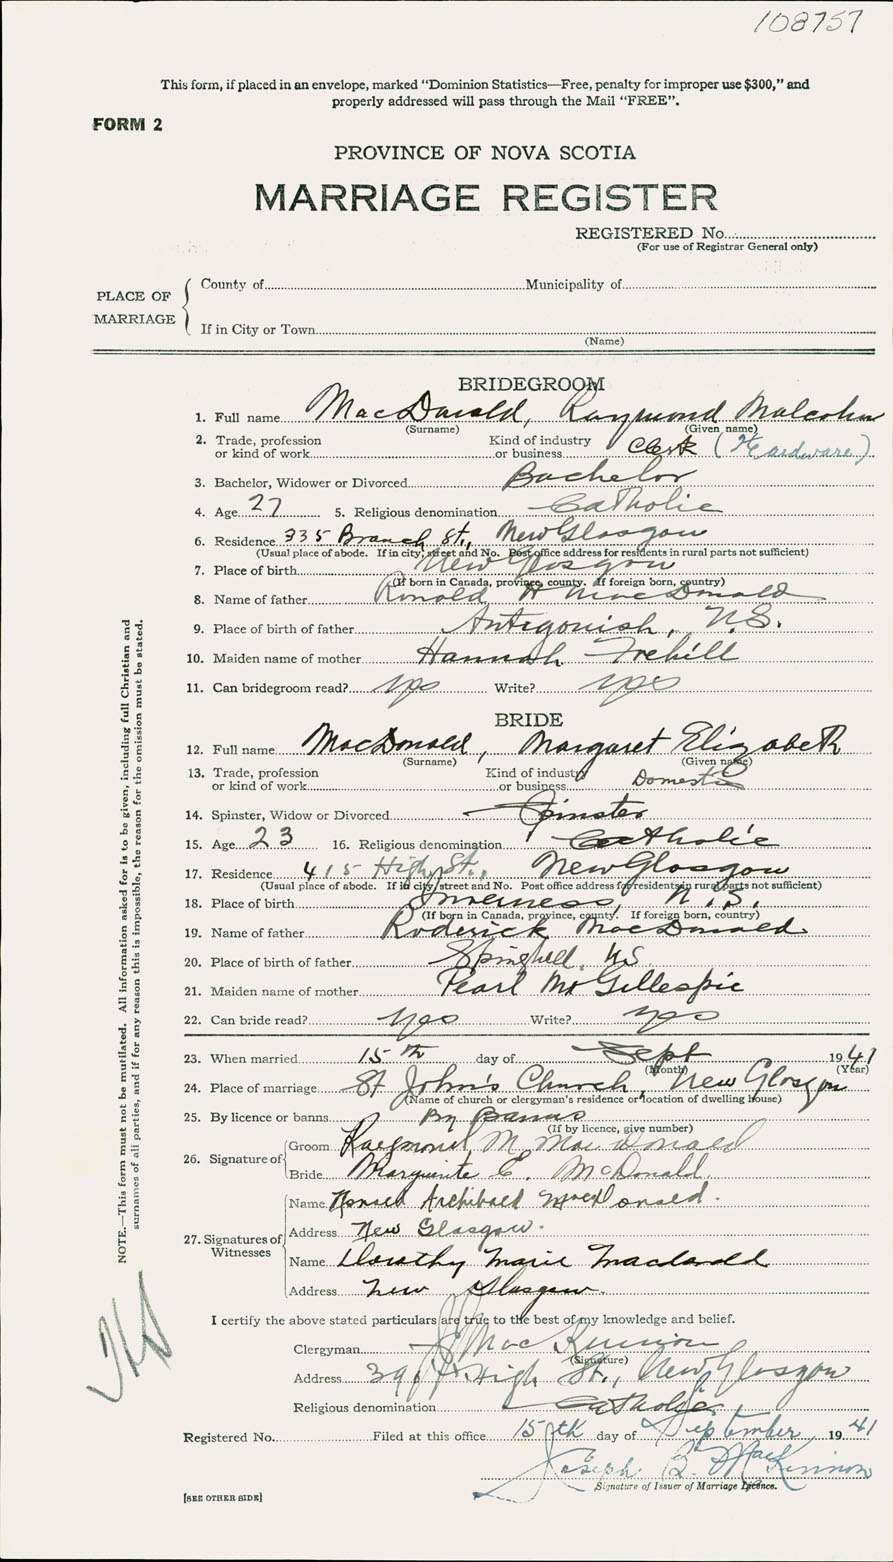 108757
This form, if placed in an envelope, marked “Dominion Statistics—Free, penalty for improper use $300,” and
properly addressed will pass through the Mail “FREE”.
FORM 2
PROVINCE OF NOVA SCOTIA
MARRIAGE REGISTER
REGISTERED No.
(For use of Registrar General only)
PLACE OF MARRIAGE
County of Municipality of
If in City or Town
(Name)
BRIDEGROOM
1. Full name MacDonald, Raymond Malcolm
(Surname) (Given name)
2. Trade, profession or kind of work Kind of industry or business Clerk (Hardware)
3. Bachelor, Widower or Divorced Bachelor
4. Age 27 5. Religious denomination Catholic
6. Residence 335 Branch St., New Glasgow
(Usual place of abode. If in city, street and No. Post office address for residents in rural parts not sufficient)
7. Place of birth New Glasgow
(If born in Canada, province, county. If foreign born, country)
8. Name of father Ronald H MacDonald
9. Place of birth of father Antigonish, N.S.
10. Maiden name of mother Hannah Trehill
11. Can bridegroom read? yes Write? yes
BRIDE
12. Full name MacDonald, Margaret Elizabeth
(Surname) (Given name)
13. Trade, profession or kind of work Kind of industry or business Domestic
14. Spinster, Widow or Divorced Spinster
15. Age 23 16. Religious denomination Catholic
17. Residence 415 High St., New Glasgow
(Usual place of abode. If in city street and No. Post office address for residents in rural parts not sufficient)
18. Place of birth Inverness, N.S.
(If born in Canada, province, county. If foreign born, country)
19. Name of father Roderick MacDonald
20. Place of birth of father Springhill, NS
21. Maiden name of mother Pearl McGillespie
22. Can bride read? yes Write? yes
23. When married 15th day of Sept 1941
(Month) (Year)
24. Place of marriage St John's Church, New Glasgow
(Name of church or clergyman's residence or location of dwelling house)
25. By licence or banns By Banns
(If by licence, give number)
26. Signature of Groom Raymond M MacDonald
Bride Marguerite E. McDonald
27. Signatures of Witnesses
Name Archibald MacDonald.
Address New Glasgow.
Name Dorothy Marie Macdonald
Address New Glasgow.
I certify the above stated particulars are true to the best of my knowledge and belief.
Clergyman MacKinnon
(Signature)
Address High St., New Glasgow
Religious denomination Catholic
Registered No. Filed at this office 15th day of September 1941
Joseph B. MacKinnon
Signature of Issuer of Marriage Licence.
[SEE OTHER SIDE]
NOTE.—This form must not be mutilated. All information asked for is to be given, including full Christian and
surnames of all parties, and if for any reason this is impossible, the reason for the omission must be stated.